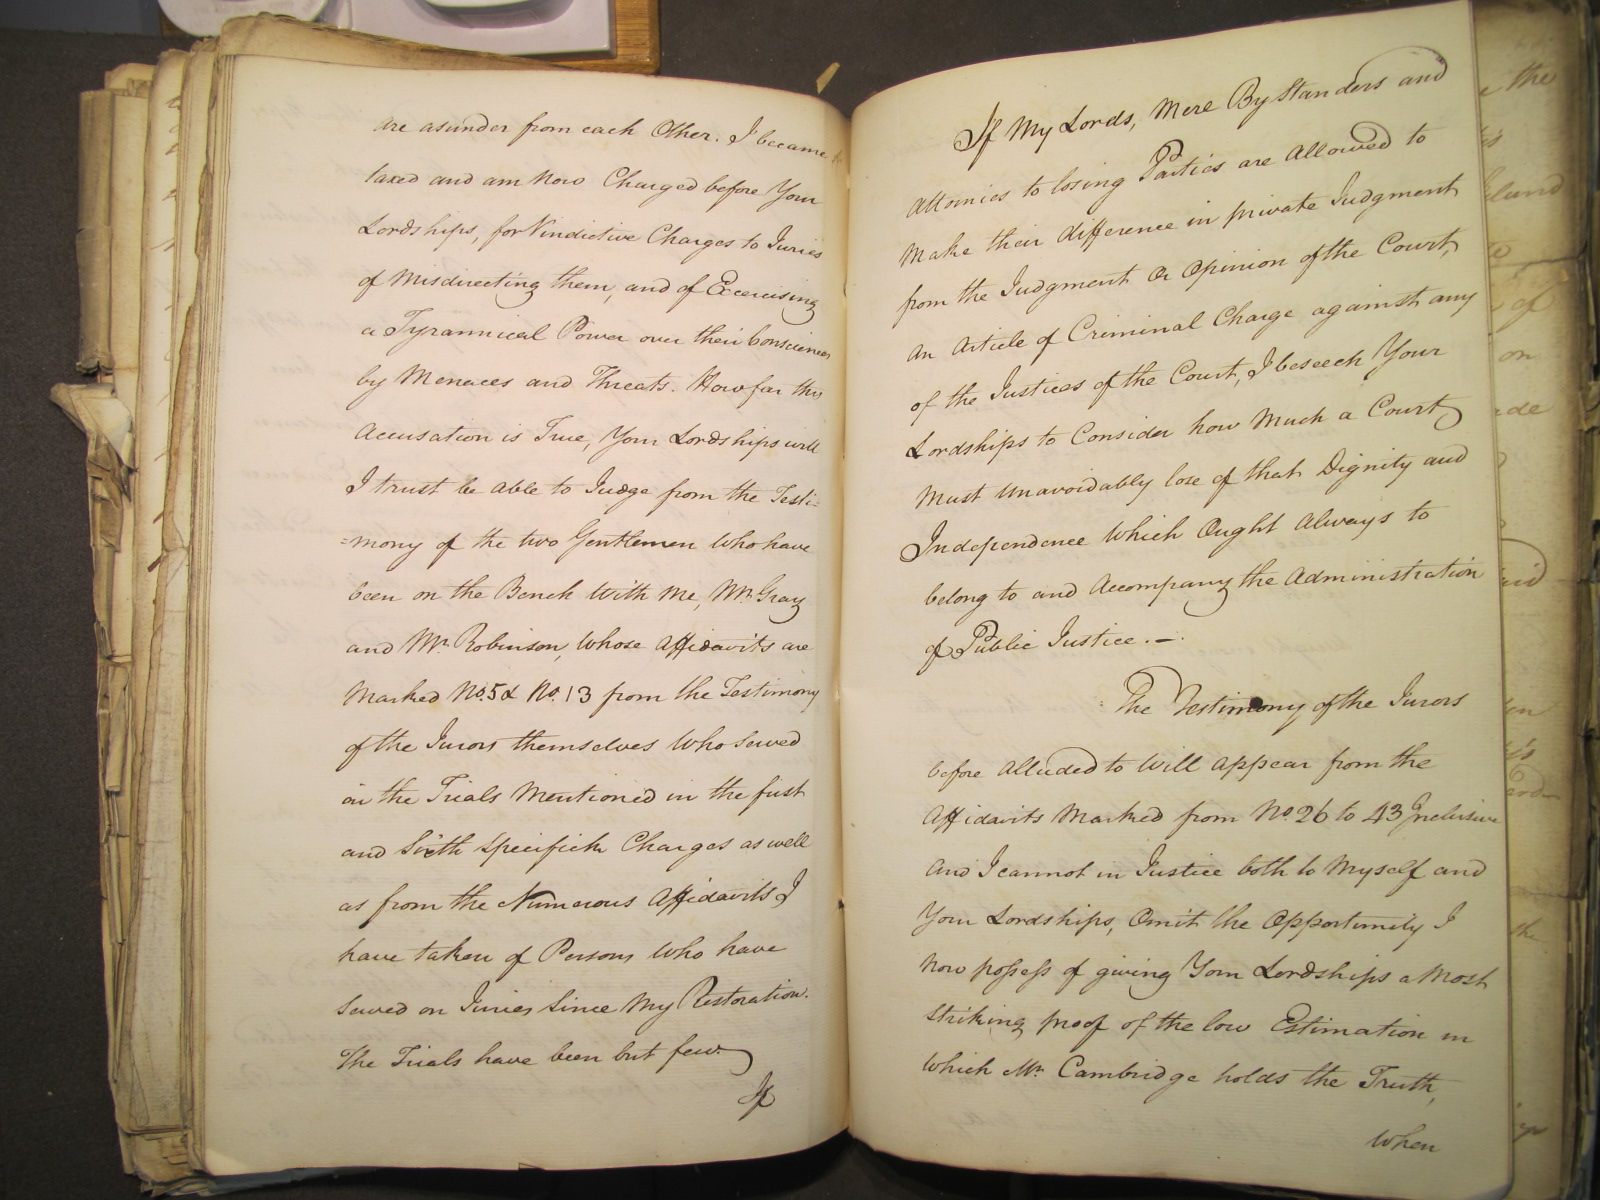 are asunder from each Other. I became
taxed and am Now Charged before Your
Lordships, for Vindictive Charges to Juries
of Misdirecting them, and of Excercising
a Tyrannical Power over their Consciences
by Menaces and Threats. How far this
Accusation is True, Your Lordships will
I trust be Able to Judge from the Testi=
=mony of the two Gentlemen Who have
been on the Bench With Me, Mr. Gray
and Mr. Robinson, Whose Affidavits are
Marked No. 5 & No. 13 from the Testimony
of the Jurors themselves Who Served
on the Trials Mentioned in the first
and Sixth Specifick Charges as well
as from the Numerous Affidavits I
have taken of Persons Who have
Served on Juries Since My Restoration.
The Trials have been but few.
If
If My Lords, Mere By Standers and
Attornies to losing Parties are Allowed to
Make their difference in private Judgment
from the Judgment Or Opinion of the Court,
an Article of Criminal Charge against any
of the Justices of the Court, I beseech Your
Lordships to Consider how Much a Court
Must Unavoidably lose of that Dignity and
Independence Which Ought Always to
belong to and Accompany the Administration
of Public Justice.—
The Testimony of the Jurors
before Alluded to Will Appear from the
Affidavits Marked from No. 26 to 43 Inclusive
And I cannot in Justice both to Myself and
Your Lordships, Omit the Opportunity I
Now possess of giving Your Lordships a Most
Striking proof of the low Estimation in
Which Mr. Cambridge holds the Truth,
When